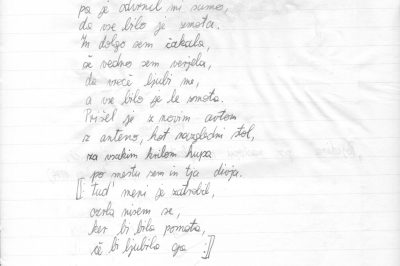 pa je odvrnil mi samo,
da vse bilo je zmota.
In dolgo sem čakala,
še vedno sem verjela,
da vroče ljubi me,
a vse bilo je le zmota.
Prišel je z novim avtom
z anteno, kot razgledni stol,
za vsakim krilom hupa
po mestu sem in tja divja.
[[: Tud' meni je zatrobil,
ozrla nisem se,
ker bi bila pomota,
če bi ljubila ga :]]